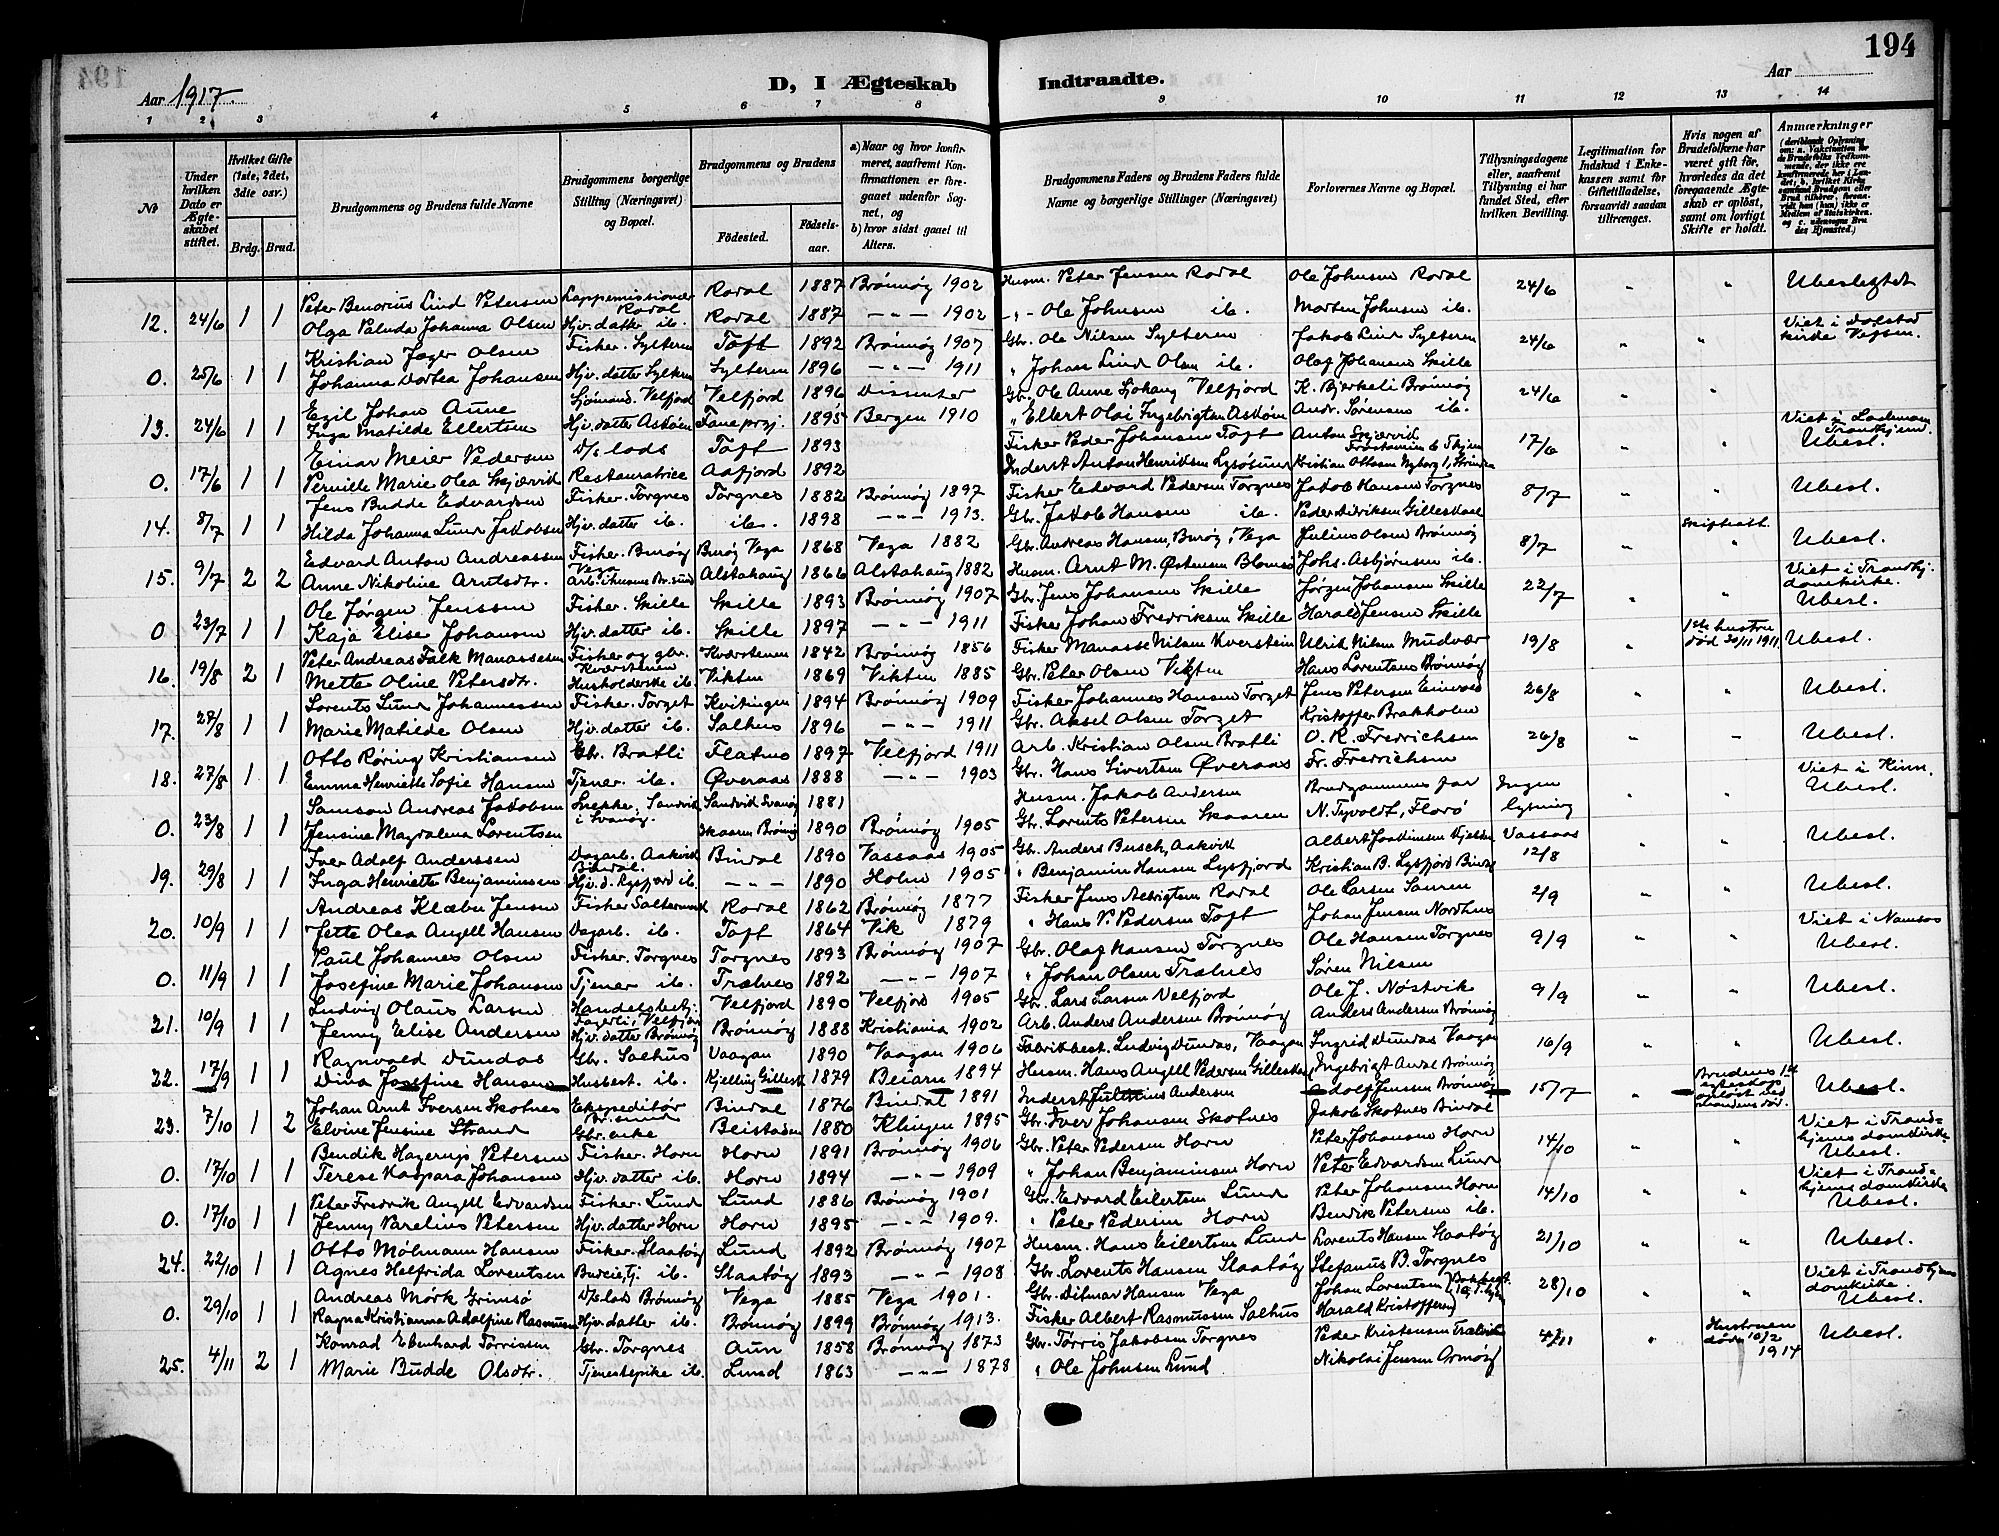 194
Aar 1917. D, I Ægteskab Indtraadte. Aar
1 2 3 4 5 6 7 8 9 10 11 12 13 14
No
Under hvilken Dato er Ægteskabet stiftet.
Hvilket Gifte (1ste, 2det, 3die osv.)
Brdg. Brud.
Brudgommens og Brudens fulde Navne
Brudgommens borgerlige Stilling (Næringsvei) og Bopæl.
Brudgommens og Brudens
Fødested. Fødselsaar.
a) Naar og hvor konfirmeret, saafremt Konfirmationen er foregaaet udenfor Sognet, og
b) hvor sidst gaaet til Alters.
Brudgommens Faders og Brudens Faders fulde Navne og borgerlige Stillinger (Næringsvei)
Forlovernes Navne og Bopæl.
Tillysningsdagene eller, saafremt Tillysning ei har fundet Sted, efter hvilken Bevilling.
Legitimation for Indskud i Enkekassen samt for Giftetilladelse, forsaavidt saadan tiltrænges.
Hvis nogen af Brudefolkene har været gift før, hvorledes da det foregaaende Ægteskab er opløst, samt om lovligt Skifte er holdt.
Anmærkninger
Peter Benorius Lind Petersen Lappemissionær Rodal Rodal 1887 Brönnöy 1902 Husm. Peter Jensen Rodal Ole Johnsen Rodal 24/6 " " Ubeslegtet
12. 24/6 1 1 Olga Paluda Johanna Olsen Hjv. datter ib. Rodal 1887 -"- 1902 -"- Ole Johnsen ib. Morten Johnsen ib.
Kristian Jæger Olsen Fisker. Sylteren Toft 1892 Brönnöy 1907 Gbr. Ole Nilsen Sylteren Jakob Lind Sylteren 24/6 " " Viet i Dolstad kirke Vefsen.
0. 25/6 1 1 Johanna Dortea Johansen Hjv. datter Sylteren Sylteren 1896 -"- 1911 " Johan Lind Olsen ib. Olaf Johansen Skille
Egil Johan Aune Sjömand. Velfjord Velfjord 1896 Dissenter Gbr. Ole Anne Sjohany Velfjord K. Bjerkeli Brönnöy 24/6 " "
13. 24/6 1 1 Inga Matilde Ellertsen Hjv. datter Asköen Fane prj. 1895 Bergen 1910 " Ellert Olai Ingebrigtsen Asköen Andr. Sørensen ib.
Einar Meier Pedersen D/s lods Toft 1893 Fisker Peder Johansen Toft Anton Skjærvid 17/6 " " Viet i Lademoen Trondhjem. Ubesl.
0. 17/6 1 1 Pernille Marie Olea Skjærvik Restauratrice Aafjord 1892 Inderst Anton Henriksen Lysøsund Kristian Ottosen Nyborg 1, Strinda
Jens Budde Edvardsen Fisker. Torgnes Torgnes 1882 Brönnöy 1897 Fisker Edvard Pedersen Torgnes Jakob Hansen Torgnes 8/7 " " Ubesl.
14. 8/7 1 1 Hilda Johanna Lund Jakobsen Hjv. datter ib. ib. 1898 -"- 1913. Gbr. Jakob Hansen ib. Peder Didriksen Gillesdaal
Edvard Anton Andreassen Fisker. Buröy Vega Buröy Vega 1868 Vega 1882 Gbr. Andreas Hansen, Buröy, Vega Julius Olsen Brönnöy 8/7 " Skifteatt. Ubesl.
15. 9/7 2 2 Anne Nikoline Arntsdtr. Alstahaug 1866 Alstahaug 1882 Husm. Arnt M. Østensen Blomsö Johs. Asbjørnsen ib.
Ole Jørgen Jenssen Fisker. Skille Skille 1893 Brönnöy 1907 Gbr. Jens Johansen Skille Jørgen Johansen Skille 22/7 " " Viet i Trondhj. domkirke. Ubesl.
0 23/7 1 1 Kaja Elise Johansen Hjv. datter ib. Skille 1897 -"- 1911 Fisker Johan Fredriksen Skille Harald Jensen Skille
Peter Andreas Falk Manassesen Fisker og gbr. Kværstenen Kværstenen 1842 Brönnöy 1856 Fisker Manasse Nilsen Kverstein Ulrik Nilsen Mudvær 19/8 " 1ste hustru död 20/11 1911 Ubesl.
16. 19/8 2 1 Mette Oline Petersdtr. Husholderske ib. Vikten 1869 Vikten 1885 Gbr. Peter Olsen Vikten Hans Lorentsen Brönnöy
Lorents Lund Johannessen Fisker. Torget Kvitingen 1894 Brönnöy 1909 Fisker Johannes Hansen Torget Jens Petersen 26/8 " " Ubesl.
17. 28/8 1 1 Marie Matilde Olsen Hjv. datter ib. Salhus 1896 -"- 1911 Gbr. Aksel Olsen Torget Kristoffer Brakholm
Otto Röring Kristiansen Gbr. Bratli Flatnes 1897 Velfjord 1911 Arb. Kristian Olsen Bratli O. K. Fredrichsen 26/8 " - Ubesl.
18. 27/8 1 1 Emma Henriette Sofie Hansen Tjener ib. Øveraas 1888 -"- 1903 Gbr. Hans Sivertsen Øveraas Fr. Fredrichsen
Samson Andreas Jakobsen Snekker, Sandvik i Svanöy. Sandvik Svanöy 1881 Husm. Jakob Andersen Brudgommens far Ingen lysning " " Viet i Kinn. Ubesl.
0. 23/8 1 1 Jensine Magdalena Lorentsen Skaaren Brönnöy 1890 Brönnöy 1905 Gbr. Lorents Petersen Skaaren N. Tyvoldt, Florö
Iver Adolf Anderssen Dagarb. Aakvik Bindal. Bindal 1890 Vassaas 1905 Gbr. Anders Busch, Aakvik Albert Joakimsen Kjelsen Vassaas 12/8 " " Ubesl.
19. 29/8 1 1 Inga Henriette Benjaminsen Hjv. d. Lysfjord ib. -"- 1890 Holm 1905 " Benjamin Hansen Lysfjord Kristian B. Lysfjord Bindal
Andreas Klæbu Jensen Fisker Salternes Rodal 1862 Brönnöy 1877 Fisker Jens Aebrigtsen Rodal Ole Larsen Sannen 2/9 " " Ubesl.
20. 10/9 1 1 Jette Olea Angell Hansen Dagarb. ib. Toft 1864 Vik 1879 " Hans P. Pedersen Toft Johan Jensen Nordhus
Paul Johannes Olsen Fisker. Torgnes Torgnes 1893 Brönnöy 1907 Gbr. Olaf Hansen Torgnes Ole Hansen Torgnes 9/9 " " Viet i Namsos Ubesl.
0. 11/9 1 1 Josefine Marie Johansen Tjener ib. Trælnes 1892 -"- 1907 " Johan Olsen Trælnes Søren Nilsen
Ludvig Olaus Larsen Handelsbestj. Fagerli, Velfjord Velfjord 1890 Velfjord 1905 Gbr. Lars Larsen Velfjord Ole J. Nøstvik 9/9 " " Ubesl.
21. 10/9 1 1 Jenny Elise Andersen Hjv. datter Brönnöy Brönnöy 1888 Kristiania 1902 Arb. Anders Andersen Brönnöy Anders Andersen Brönnöy
Ragnvald Dundas Gbr. Salhus Vaagan 1890 Vaagan 1906 Fabrikbest. Ludvig Dundas, Vaagan Ingrid Dundas Vaagan 16/9 " " Ubesl.
22. 17/9 1 1 Dina Josefine Hansen Husbest. ib. Kjelling Gillesk. 1879 Beiarn 1894 Husm. Hans Angell Pedersen Gilleskaal Ingebrigt Brönnöy
Johan Arnt Iversen Skotnes Ekspeditör Br.sund Bindal 1876 Bindal 1891 Inderst Andersen Adolf Jenssen Brönnöy 15/7 " Brudens 1ste egteskap oplöst ved mandens död. Ubesl.
23. 7/10 1 2 Elvine Jensine Strand Gbr. enke Beistaden 1880 Klingen 1895 Gbr. Iver Johansen Skotnes Jakob Skotnes Bindal
Bendik Hagerup Petersen Fisker. Horn Horn 1891 Brönnöy 1906 Gbr. Peter Pedersen Horn Peter Johansen Horn 14/10 " " Viet i Trondhjems domkirke Ubesl.
0. 17/10 1 1 Terese Kaspara Johansen Hjv. datter ib. Horn 1894 -"- 1909 " Johan Benjaminsen Horn Peter Edvardsen Lund
Peter Fredrik Angell Edvardsen Fisker. Lund Lund 1886 Brönnöy 1901 Gbr. Edvard Eilertsen Lund Peter Johansen Horn 14/10 " " Viet i Trondhjems domkirke Ubesl.
0. 17/10 1 1 Jenny Parelius Petersen Hjv. datter Horn Horn 1895 -"- 1909. " Peter Pedersen Horn Bendik Petersen ib.
Otto Mölmann Hansen Fisker. Slaatöy Lund 1892 Brönnöy 1907 Husm. Hans Eilertsen Lund Lorents Hansen Slaatöy 21/10 " " Ubesl.
24. 22/10 1 1 Agnes Helfrida Lorentsen Budeie, tj. ib. Slaatöy 1893 -"- 1908 Gbr. Lorents Hansen Slaatöy Stefanus B. Torgnes
Andreas Mörk Grimsö D/s lods Brönnöy Vega 1885 Vega 1901. Gbr. Ditmar Hansen Vega Johan Lorentsen 28/10 " " Viet i Trondhjems domkirke. Ubesl.
0. 29/10 1 1 Ragna Kristianna Adolfine Rasmussen Hjv. datter ib. Brönnöy 1899 Brönnöy 1913. Fisker Albert Rasmussen Salhus Harald Kristoffersen
Konrad Eberhard Torrissen Gbr. Torgnes Aun 1858 Brönnöy 1873 Gbr. Törris Jakobsen Torgnes Peder Kristensen Trælvik 4/11 " Hustruen döde 10/2 1914 Ubesl.
25. 4/11 2 1 Marie Budde Olsdtr. Tjenestepike ib. Lund 1863 -"- 1878 " Ole Johnsen Lund Nikolai Jensen Armöy